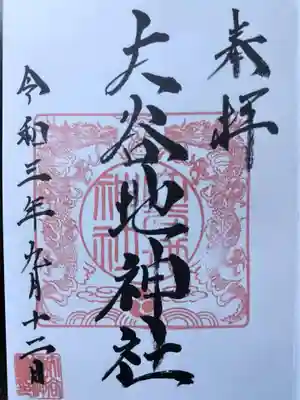 奉拝
大谷地神社
令和三年九月十二日